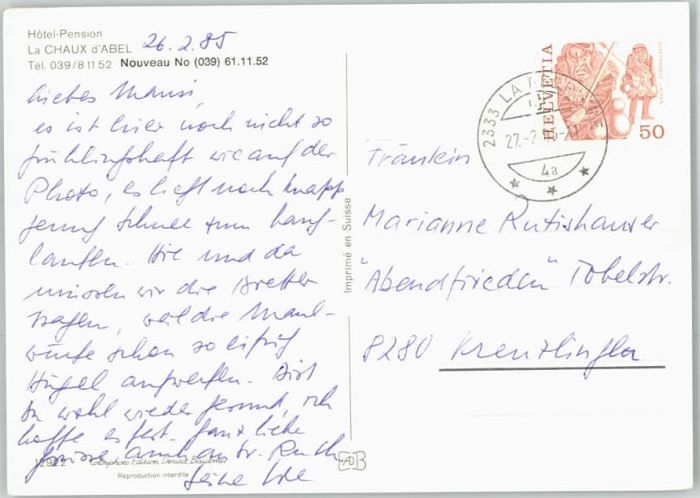 Hôtel-Pension
La CHAUX d'ABEL
Tél. 039/8 11 52 Nouveau No (039) 61.11.52
26.2.85
Liebes Mausi,
es ist hier noch nicht so
frühlingshaft wie auf der
Photo, es liegt noch knapp
genug Schnee zum Lang-
laufen. Hie und da
müssen wir die Bretter
tragen, weil die Maul-
würfe schon so eifrig
Hügel aufwerfen. Bist
Du wohl wieder gesund, ich
hoffe es fest. Ganz liebe
Grüsse auch an Sr. Ruth
Deine
Imprimé en Suisse
Reproduction interdite
HELVETIA
50
2333 LA
27.-2.
4a
Fräulein
Marianne Rutishauser
"Abendfrieden" Tobelstr.
8280 Kreuzlingen